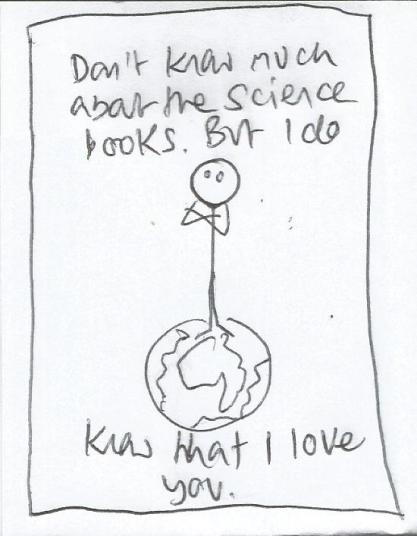 Don't know much
about the science
books. But I do
know that I love
you.